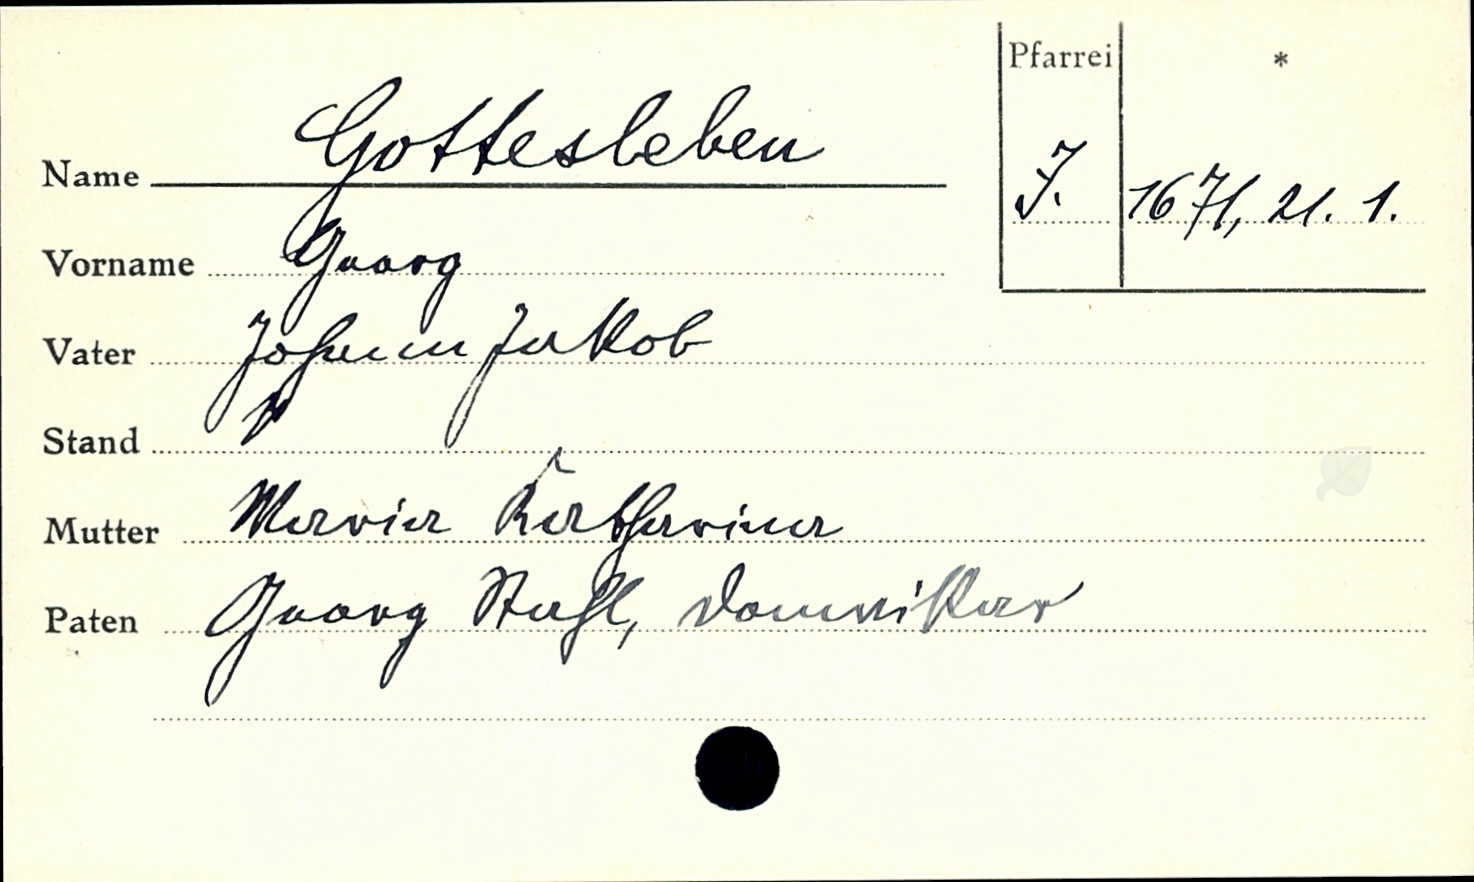 Pfarrei *
Name Gottesleben
J. 1671, 21. 1.
Vorname Georg
Vater Johann Jakob
Stand
Mutter Maria Katharina
Paten Georg Stahl, Domvikar